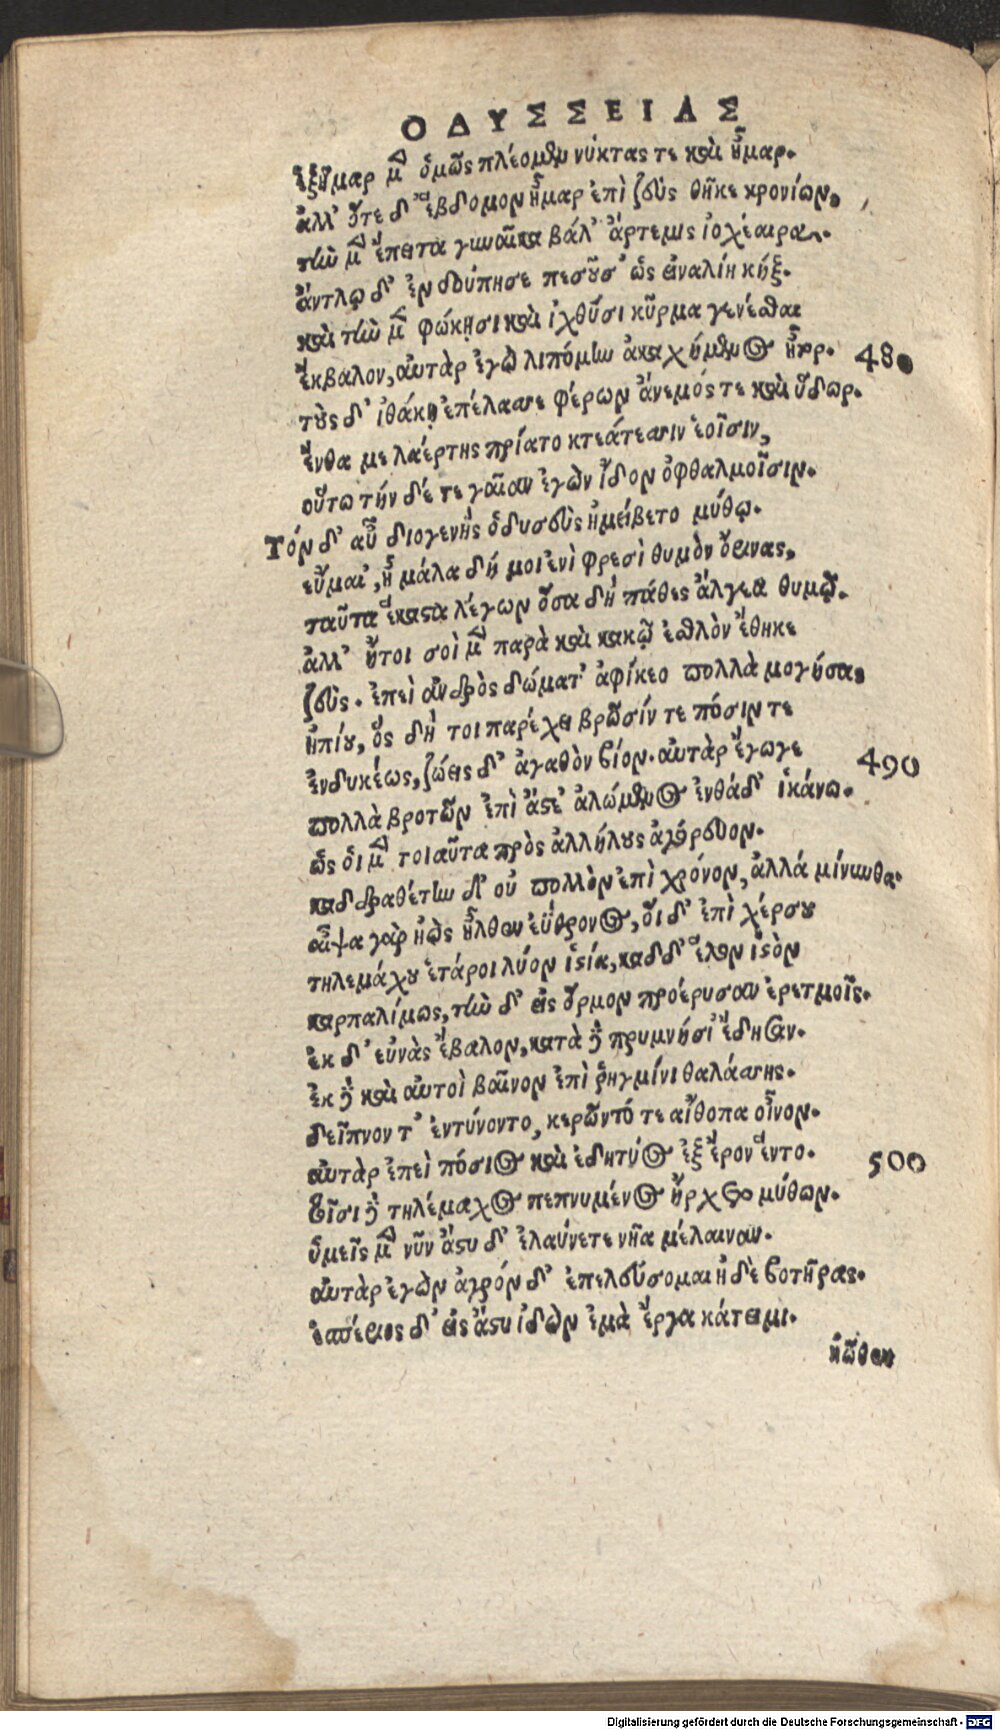 ΟΔΥΣΣΕΙΑΣ
ἑξῆμαρ μὲν ὁμῶς πλέομεν νύκτας τε καὶ ἦμαρ.
ἀλλ' ὅτε δ' ἕβδομον ἦμαρ ἐπὶ ζεὺς θῆκε κρονίων,
τὴν μὲν ἔπειτα γυναῖκα βάλ' ἄρτεμις ἰοχέαιρα.
ἄντλῳ δ' ἐνδούπησε πεσοῦσ' ὡς εἰναλίη κήξ.
καὶ τὴν μὲν φώκῃσι καὶ ἰχθύσι κύρμα γενέσθαι
ἔκβαλον, αὐτὰρ ἐγὼ λιπόμην ἀκαχήμενος ἦτορ. 480
τοὺς δ' ἰθάκῃ ἐπέλασσε φέρων ἄνεμός τε καὶ ὕδωρ.
ἔνθα με λαέρτης πρίατο κτεάτεσσιν ἑοῖσιν,
οὕτω τήν δέ τε γαῖαν ἐγὼν ἴδον ὀφθαλμοῖσιν.
Τόν δ' αὖ διογενὴς ὀδυσεὺς ἠμείβετο μύθῳ.
εὔμαι', ἦ μάλα δή μοι ἐνὶ φρεσὶ θυμὸν ὄρινας,
ταῦτα ἕκαστα λέγων ὅσα δὴ πάθες ἄλγεα θυμῷ.
ἀλλ' ἤτοι σοὶ μὲν παρὰ καὶ κακῷ ἐσθλὸν ἔθηκε
ζεύς. ἐπεὶ ἀνδρὸς δώματ' ἀφίκεο πολλὰ μογήσας
ἠπίου, ὃς δή τοι παρέχει βρῶσίν τε πόσιν τε
ἐνδυκέως, ζώεις δ' ἀγαθὸν βίον. αὐτὰρ ἔγωγε 490
πολλὰ βροτῶν ἐπὶ ἄστε' ἀλώμενος ἐνθάδ' ἱκάνω.
ὣς οἱ μὲν τοιαῦτα πρὸς ἀλλήλους ἀγόρευον.
καδδραθέτην δ' οὐ πολλὸν ἐπὶ χρόνον, ἀλλά μίνυνθα.
αἶψα γὰρ ἠὼς ἦλθεν ἐΰθρονος, οἵ δ' ἐπὶ χέρσου
τηλεμάχου ἑτάροι λύον ἱστία, καδδ' ἕλον ἱστὸν
καρπαλίμως, τὴν δ' εἰς ὅρμον προέρυσαν ἐρετμοῖς.
ἐκ δ' εὐνὰς ἔβαλον, κατὰ δὲ πρυμνήσι' ἔδησαν.
ἐκ δὲ καὶ αὐτοὶ βαῖνον ἐπὶ ῥηγμίνι θαλάσσης.
δεῖπνον τ' ἐντύνοντο, κερῶντό τε αἴθοπα οἶνον.
αὐτὰρ ἐπεὶ πόσιος καὶ ἐδητύος ἐξ ἔρον ἕντο. 500
τοῖσι δὲ τηλέμαχος πεπνυμένος ἤρχετο μύθων.
ὑμεῖς μὲν νῦν ἄστυ δ' ἐλαύνετε νῆα μέλαιναν.
αὐτὰρ ἐγὼν ἀγρόν δ' ἐπελεύσομαι ἠδὲ βοτῆρας.
ἑσπέριος δ' εἰς ἄστυ ἰδὼν ἐμὰ ἔργα κάτειμι.
ἠῶθεν
Digitalisierung gefördert durch die Deutsche Forschungsgemeinschaft - DFG